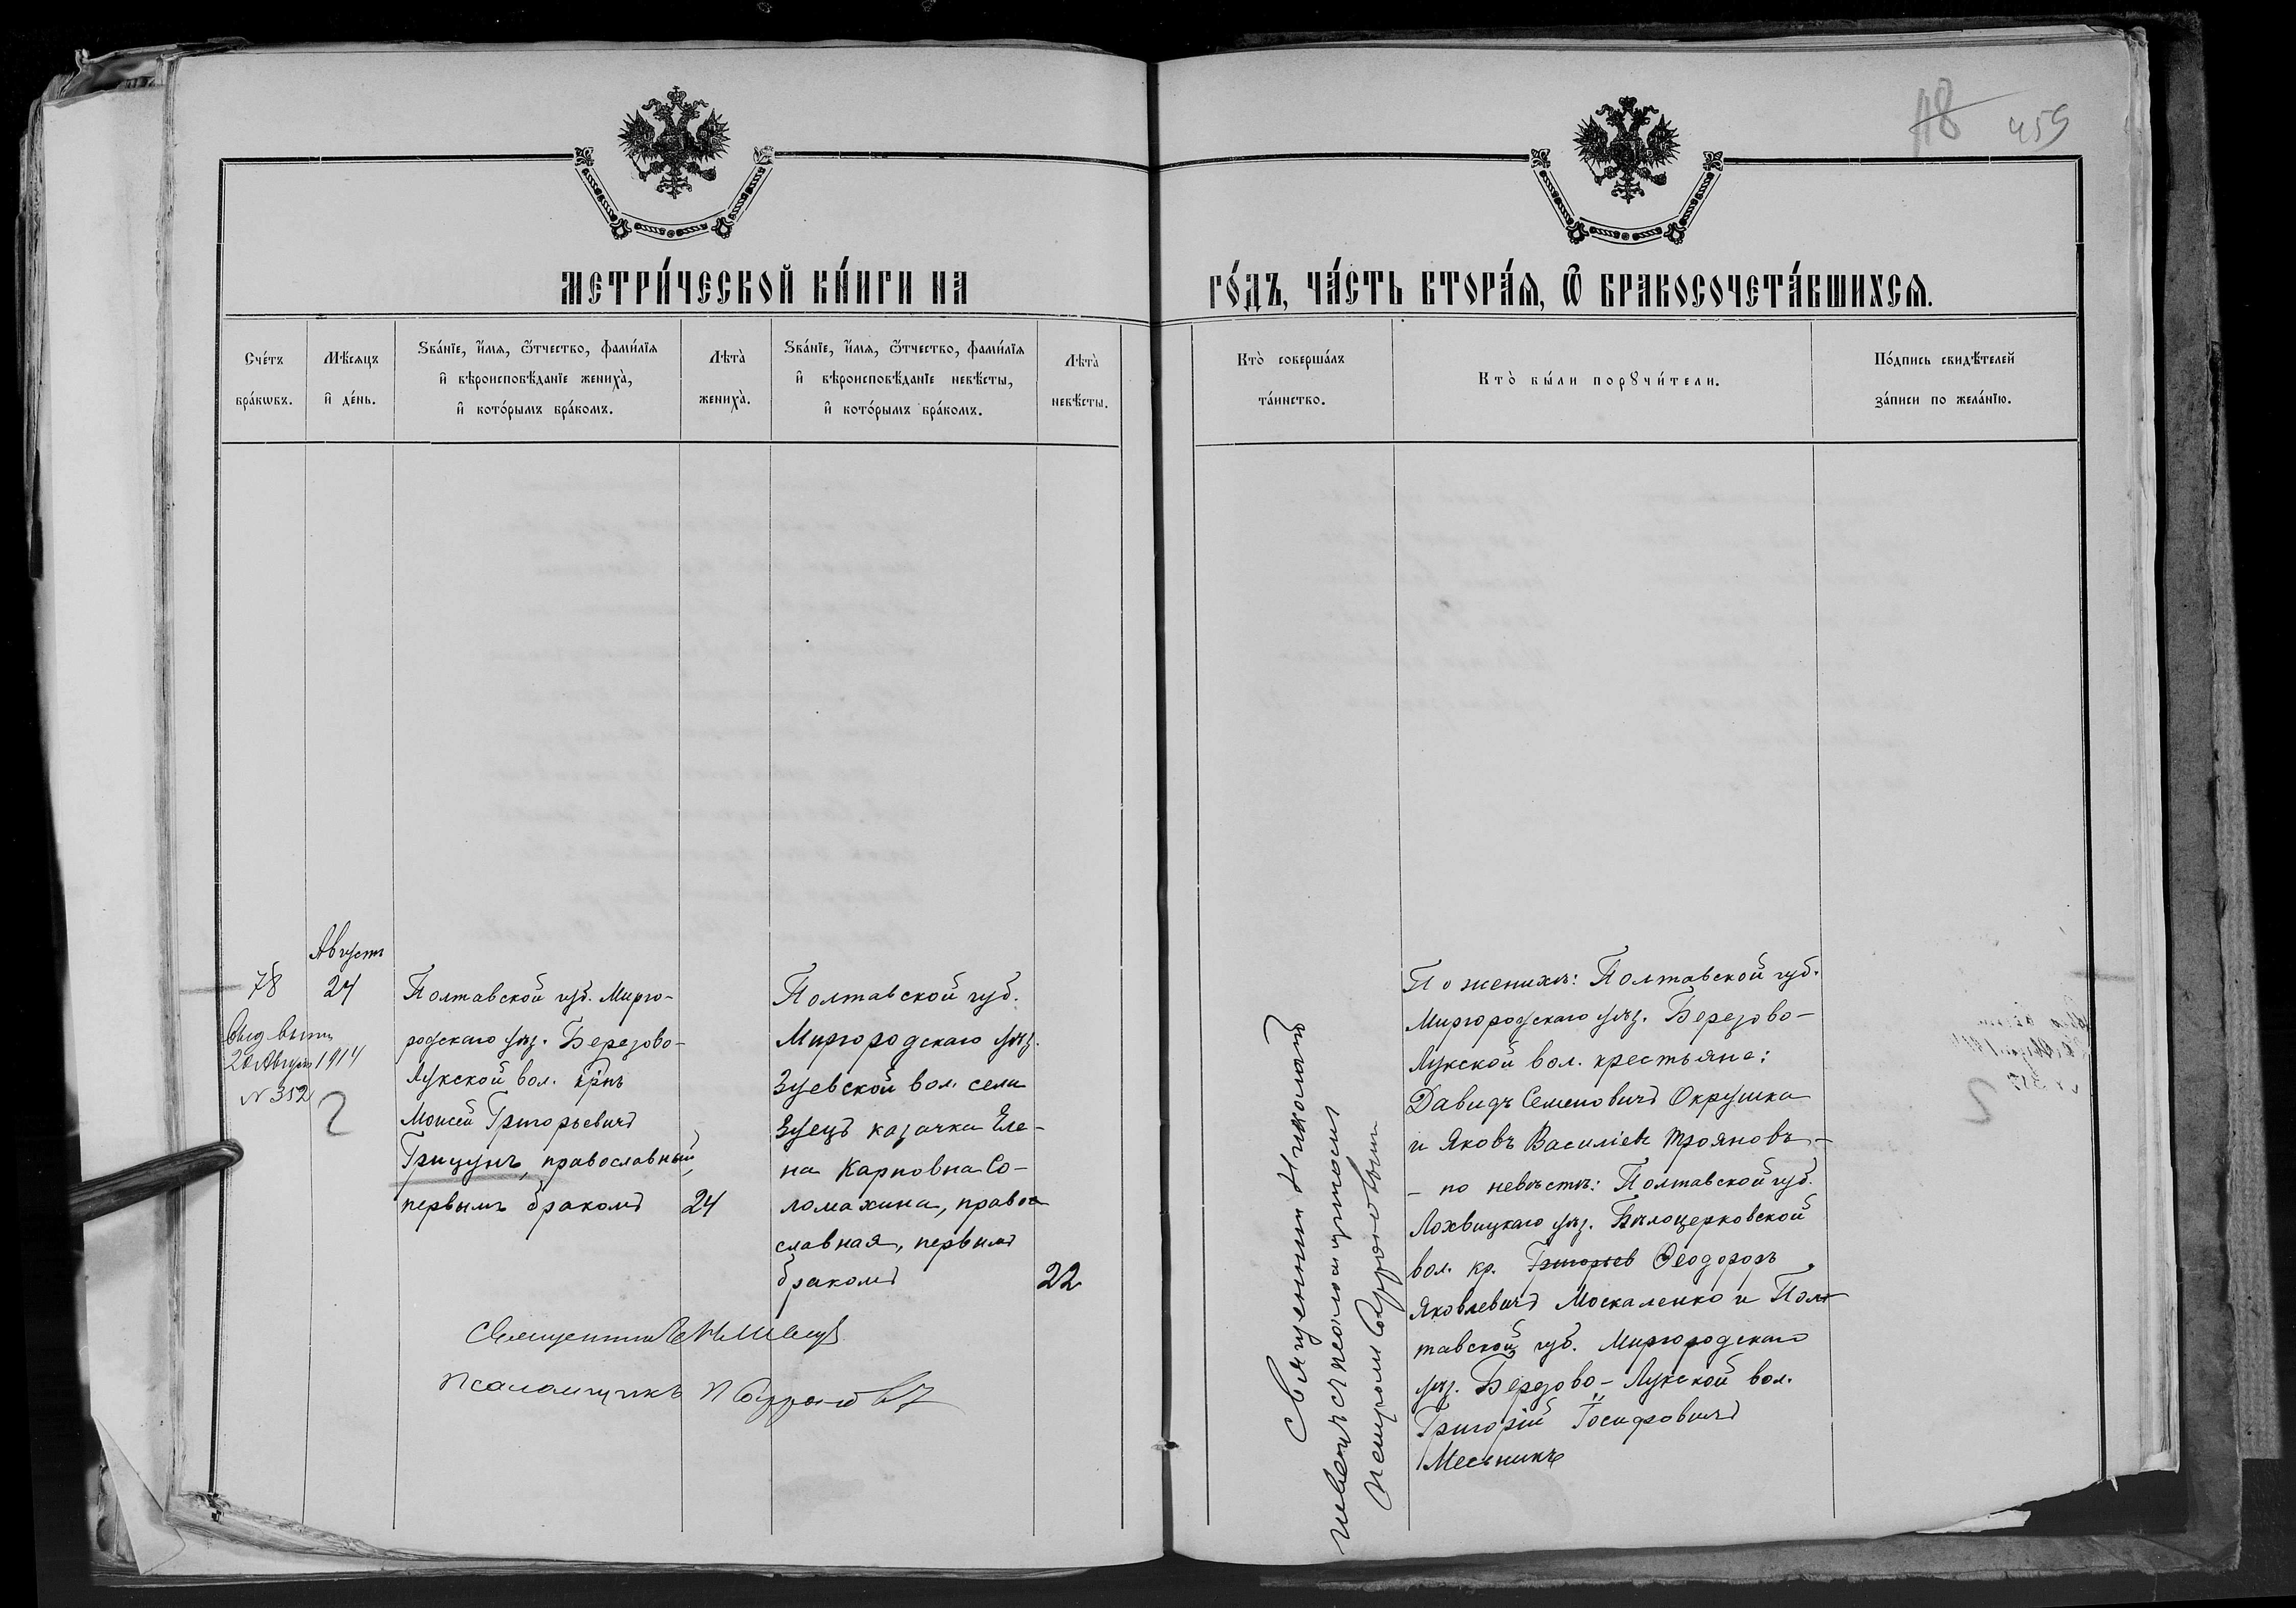 118 459
МЕТРИ́ЧЕСКОЙ КНИ́ГИ НА
ГО́ДЪ, ЧА́СТЬ ВТОРА́Я, Ѡ БРАКОСОЧЕТА́ВШИХСЯ.
Сче́тъ бра́кѡвъ.
Мѣ́сяцъ и҆ де́нь.
Ѕва́нїе, и҆́мя, ѻ҆́тчество, фами́лїя
и҆ вѣроисповѣ́данїе жениха̀,
и҆ кото́рымъ бра́комъ.
Лѣта̀ жениха̀.
Ѕва́нїе, и҆́мя, ѻ҆́тчество, фами́лїя
и҆ вѣроисповѣ́данїе невѣ́сты,
и҆ кото́рымъ бра́комъ.
Лѣта̀ невѣ́сты.
Кто̀ соверша́лъ та́инство.
Кто̀ бы́ли порꙋчи́тели.
По́дпись свидѣ́телей
за́писи по жела́нїю.
78
Августъ
24
1914
N 352
2
Полтавской губ. Мирго-
родскаго уѣз. Березово-
Лукской вол. крнъ
Моисей Григорьевичъ
Грицунъ, православный,
первымъ бракомъ
24
Полтавской губ.
Миргородскаго уѣз.
Зуевской вол. села
Зуецъ казачка Еле-
на Карповна Со-
ломахина, право-
славная, первымъ
бракомъ
22
Священникъ
Псаломщикъ
Священникъ Николай
съ псаломщикомъ
Петромъ
По женихѣ: Полтавской губ.
Миргородскаго уѣз. Березово-
Лукской вол. крестьяне:
Давидъ Семеновичъ Окрушка
и Яковъ Василіев Трояновъ –
– по невѣстѣ: Полтавской губ.
Лохвицкаго уѣз. Бѣлоцерковской
вол. кр. Григорьев Ѳеодоръ
Яковлевичъ Москаленко и Пол-
тавской губ. Миргородскаго
уѣз. Березово-Лукской вол.
Григорій Іосифовичъ
Месьникъ